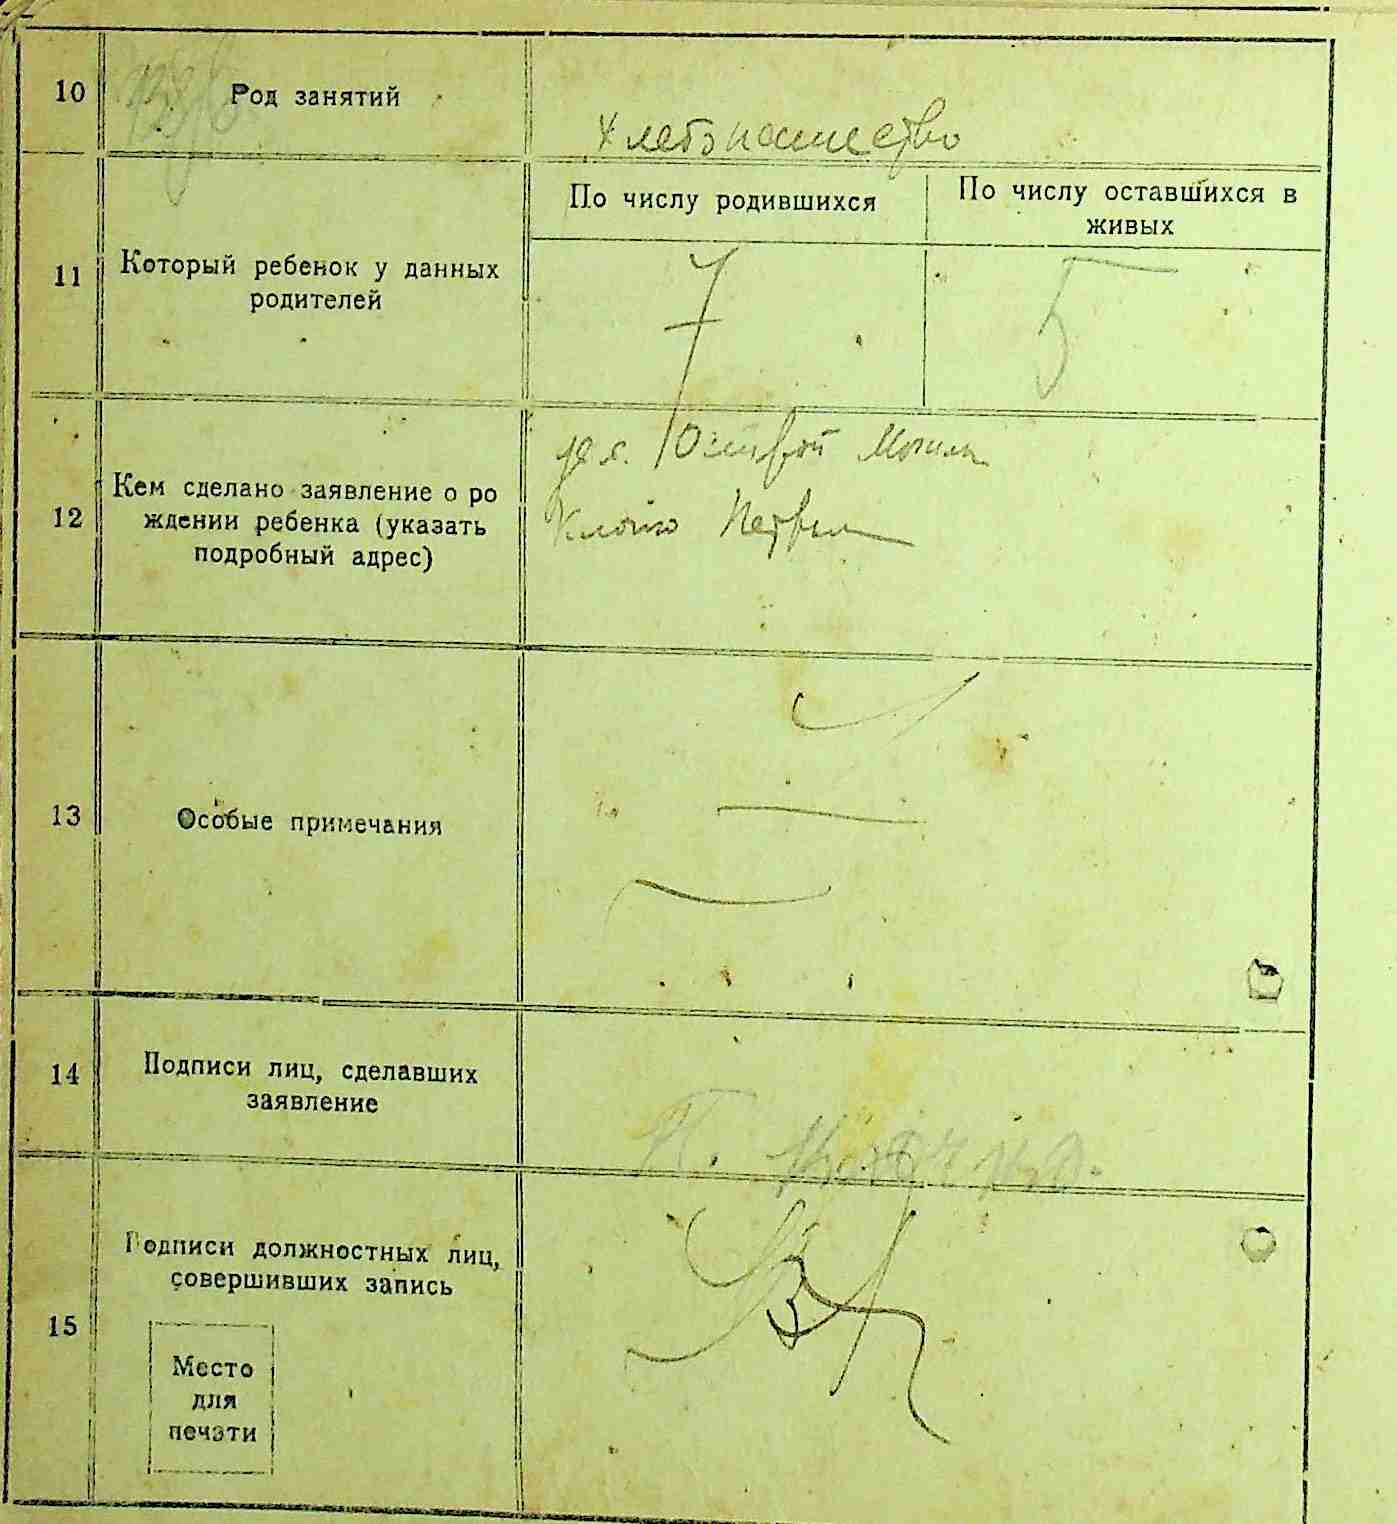 10
Род занятий
хлебопашество
11
Который ребенок у данных
родителей
По числу родившихся
По числу оставшихся в
живых
7
5
12
Кем сделано заявление о ро
ждении ребенка (указать
подробный адрес)
13
Особые примечания
14
Подписи лиц, сделавших
заявление
15
Подписи должностных лиц,
совершивших запись
Место
для
печати